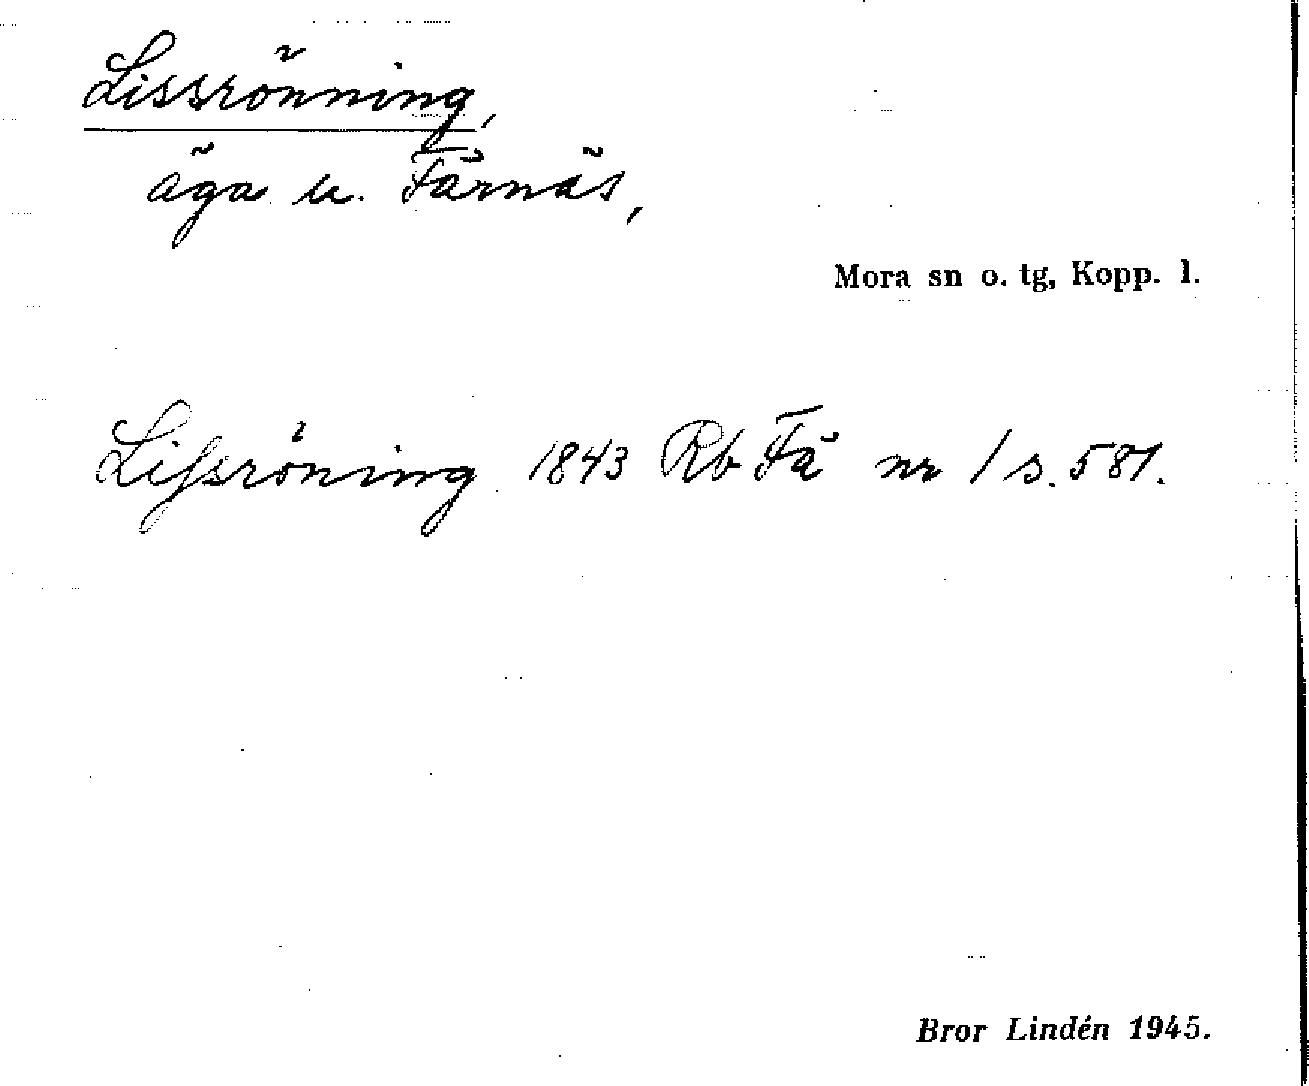 Lissrönning,
äga u. Färnäs,
Mora sn o. tg, Kopp. l.
Lifsröning 1843 Rb Fä nr 1 s. 581.
Bror Lindén 1945.